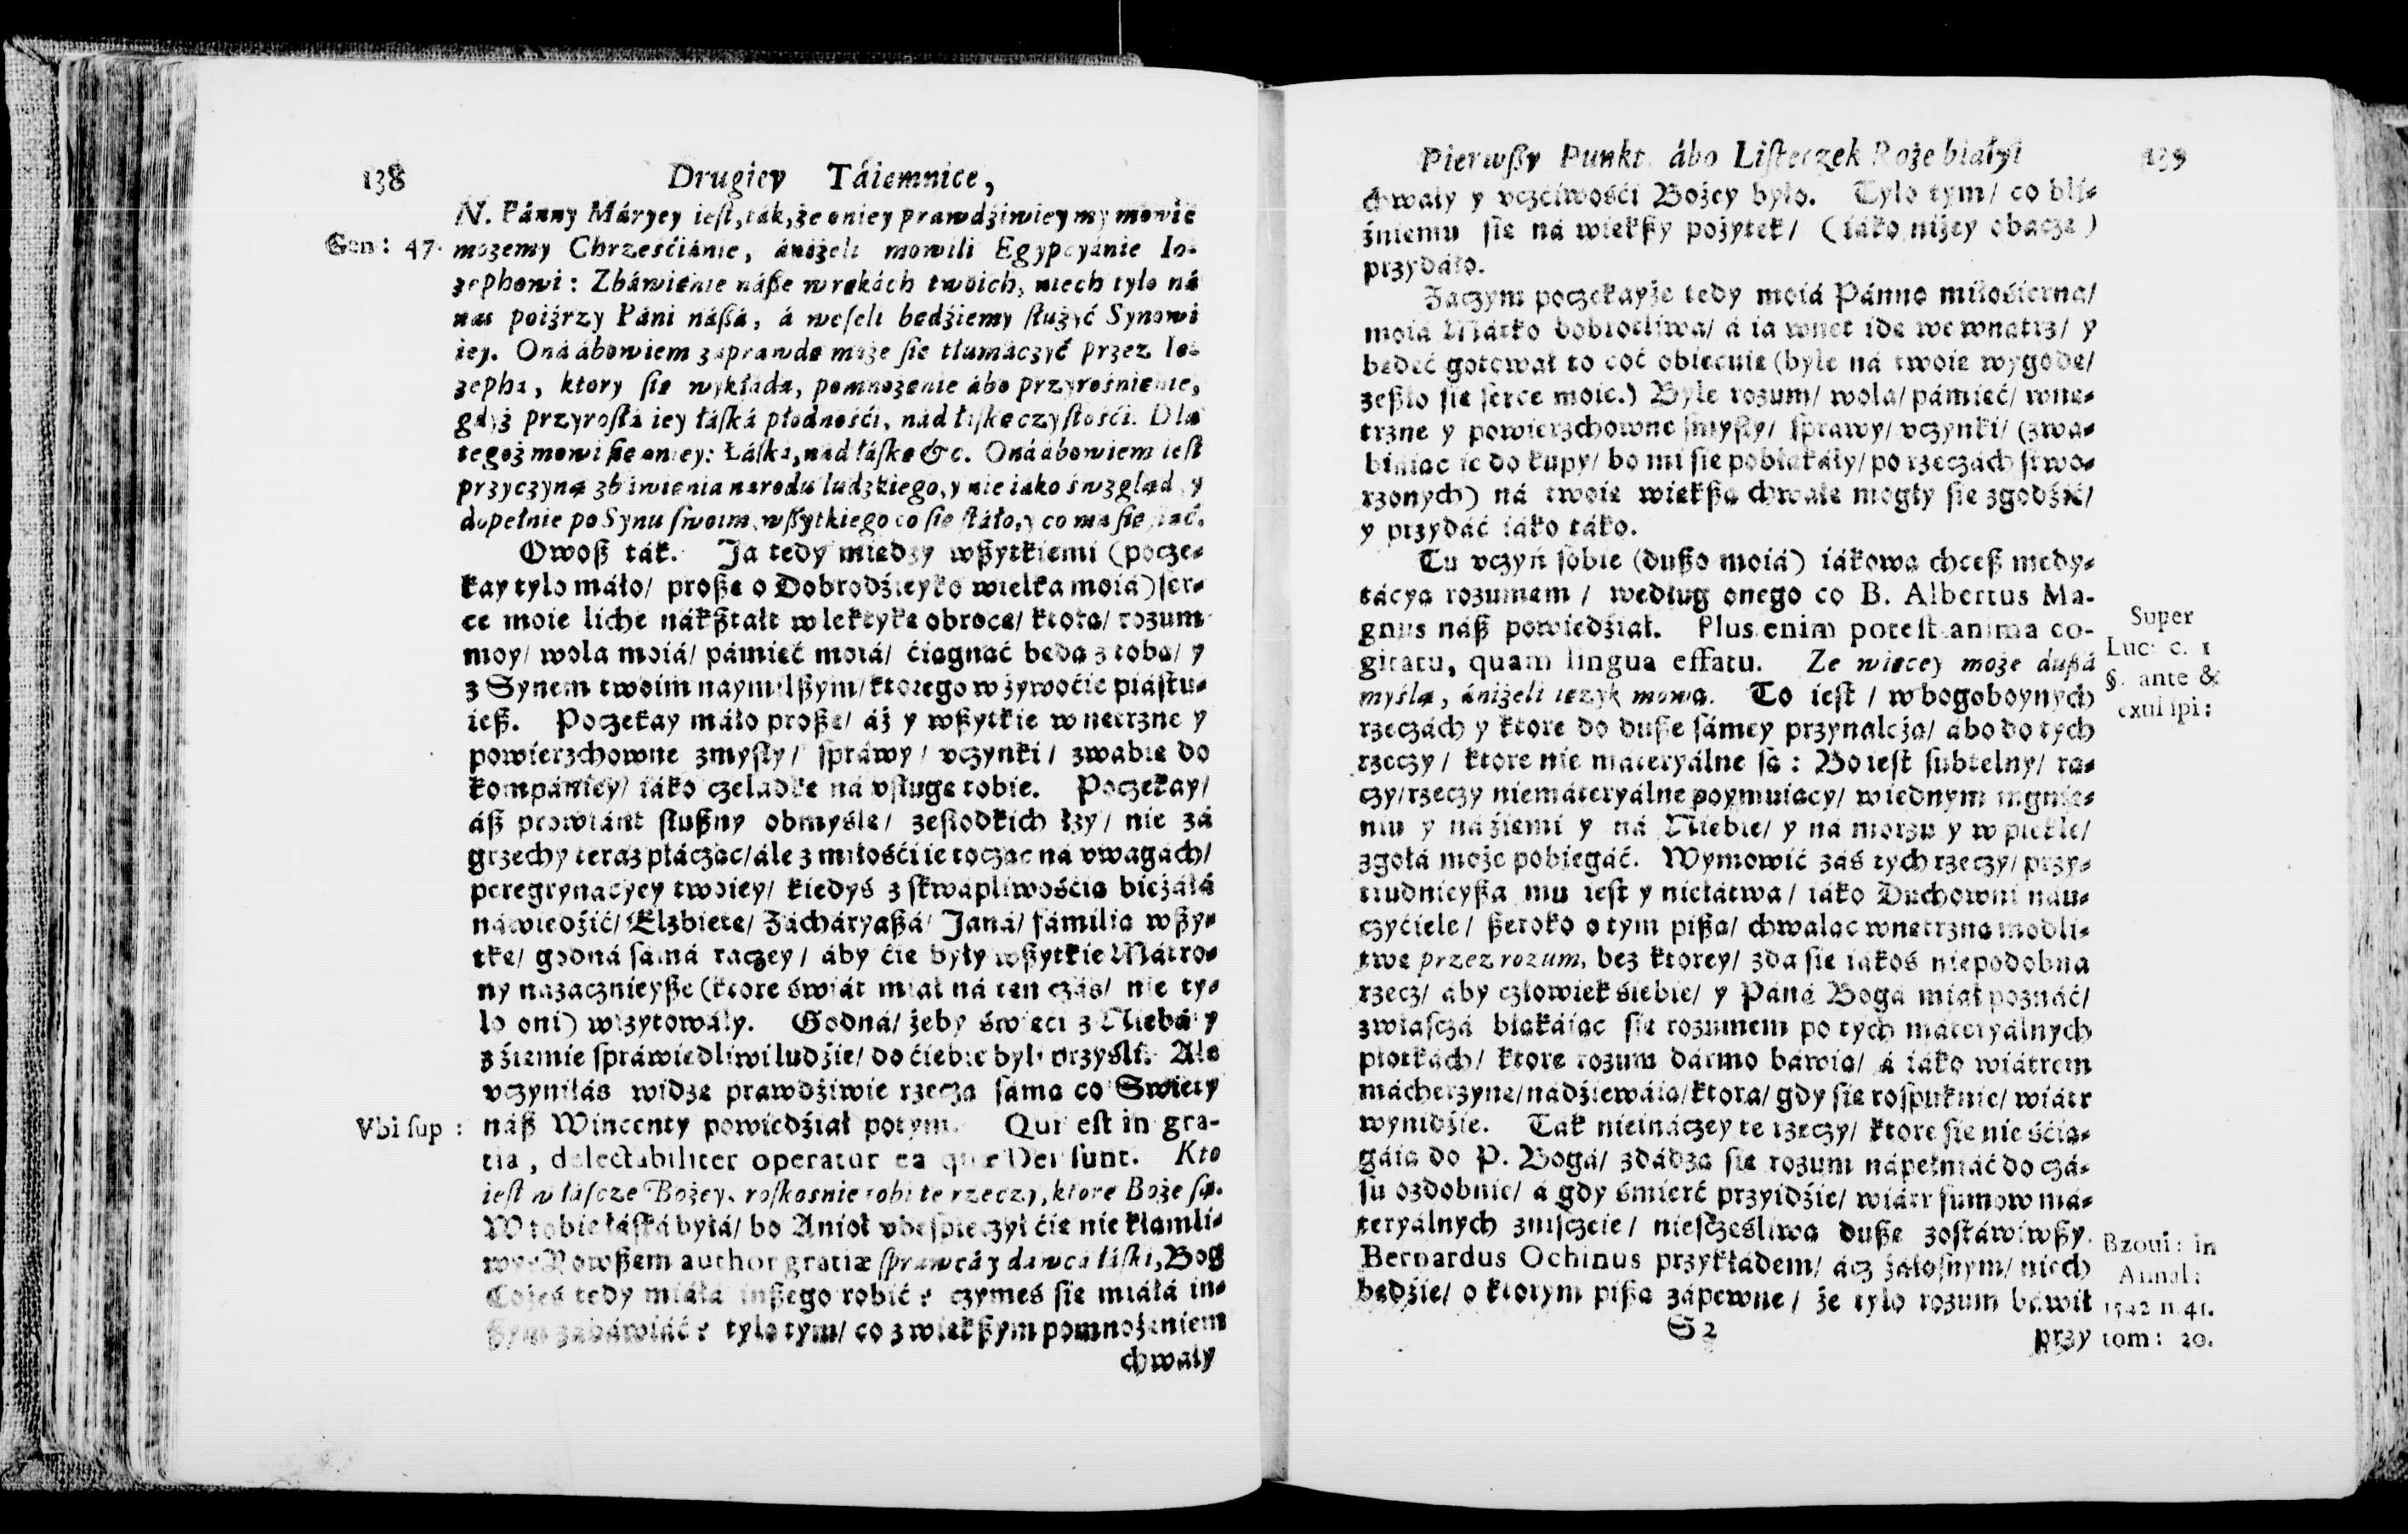 138 Drugiey Táiemnice,
N. Pánny Máryey iest, ták, że oniey prawdźiwiey my mowić
Gen: 47. mozemy Chrześćiánie, ániżeli mowili Egypcyánie Io-
zephowi: Zbáwienie náße w rękách twoich, niech tylo ná
nas poiźrzy Páni náßá, á weſeli będźiemy ſłużyć Synowi
iey. Oná ábowiem zaprawdę może ſie tłumáczyć przez Io-
zepha, ktory ſię wykłáda, pomnożenie ábo przyrośnienie,
gdyż przyroſłá iey łáſká płodnośći, nád łáſkę czyſtośći. Dla
tegoż mowi ſię oniey: Łáſka, nád łáſkę &c. Oná ábowiem ieſt
przyczyną zbáwienia narodu ludzkiego, y nie iáko świzgląd y
dopełnie po Synu ſwoim, wßytkiego co ſię ſtáło, y co ma ſię ſtać.
Owoß ták. Ja tedy między wßytkiemi (pocze-
kay tylo máło/ proßę o Dobrodźieyko wielka moiá) ſer-
ce moie liche nákßtałt w lektykę obrocę/ ktorą/ rozum
moy/ wola moiá/ pámięć moiá/ ćiągnąć będą z tobą/ y
z Synem twoim naymilßym/ ktorego w żywoćie piáſtu-
ieß. Poczekay máło proßę/ áż y wßytkie wnętrzne y
powierzchowne zmyſły/ ſpráwy/ vczynki/ zwabię do
kompániey/ iáko czeladkę ná vſługę tobie. Poczekay/
áß prowiánt ſłußny obmyślę/ zeſłodkich łzy/ nie zá
grzechy teraz płácząc/ ále z miłośći ie tocząc ná vwagách/
peregrynácyey twoiey/ kiedyś z ſkwápliwośćią bieżáłá
náwiedźić/ Elżbietę/ Zácháryaßá/ Janá/ fámilią wßy-
tkę/ godná ſámá raczey/ áby ćię były wßytkie Mátro-
ny nazacznieyße (ktore świát miał ná ten czás/ nie ty-
lo oni) wizytowáły. Godná/ żeby święći z Niebá y
z źiemie ſpráwiedliwi ludźie/ do ćiebie byli przyśli. Ale
vczyniłáś widzę prawdźiwie rzeczą ſámą co Swięty
Vbi ſup: náß Wincenty powiedźiał potym. Qui eſt in gra-
tia, delectabiliter operatur ea quæ Dei ſunt. Kto
ieſt w łáſcze Bożey, roſkosnie robi te rzeczy, ktore Boże ſą.
W tobie łáſká byłá/ bo Anioł vbeſpieczył ćię nie kłamli-
wy. Nowßem author gratiæ ſprawcá y dawcá łáſki, Bog
Cożeś tedy miáłá inßego robić? czymeś ſię miáłá in-
ßym zabáwiáć? tylo tym/ co z więkßym pomnożeniem
chwały
Pierwßy Punkt ábo Liſteczek Roże białyi 139
chwały y vczćiwośći Bożey było. Tylo tym/ co bli-
źniemu ſię ná więkßy pożytek/ (iáko niżey obaczę)
przydáło.
Zaczym poczekayże tedy moiá Pánno miłośierna/
moiá Mátko dobrotliwa/ á ia wnet idę we wnątrz/ y
będęć gotował to coć obiecuię (byle ná twoię wygodę/
zeßło ſię ſerce moie.) Byle rozum/ wola/ pámięć/ wnę-
trzne y powierzchowne ſmyſły/ ſprawy/ vczynki/ (zwa-
biaiąc ie do kupy/ bo mi ſię pobłąkáły/ po rzeczách ſtwo-
rzonych) ná twoię więkßą chwałę mogły ſię zgodźić/
y przydáć iáko táko.
Tu vczyń ſobie (dußo moiá) iákową chceß medy-
tácyą rozumem/ według onego co B. Albertus Ma-
gnus náß powiedźiał. Plus enim poteſt anima co-
gitatu, quam lingua effatu. Ze więcey może dußá
myślą, ániżeli ięzyk mową. To ieſt/ w bogoboynych
rzeczách y ktore do duße ſámey przynależą/ ábo do tych
rzeczy/ ktore nie máteryálne ſą: Bo ieſt ſubtelny/ rą-
czy/ rzeczy niemáteryálne poymuiący/ w iednym mgnie-
niu y ná źiemi y ná Niebie/ y ná morzu y w piekle/
zgołá może pobiegáć. Wymowić záś tych rzeczy/ przy-
trudnieyßa mu ieſt y niełátwa/ iáko Duchowni náu-
czyćiele/ ßeroko o tym pißą/ chwaląc wnętrzną modli-
twę przez rozum, bez ktorey/ zda ſię iákoś niepodobna
rzecz/ áby człowiek śiebie/ y Páná Bogá miał poznáć/
zwłaſczá błąkáiąc ſię rozumem po tych máteryálnych
płotkách/ ktore rozum dármo báwią/ á iáko wiátrem
mácherzynę/ nádźiewáią/ ktora/ gdy ſię roſpuknie/ wiátr
wynidźie. Tak nieináczey te rzeczy/ ktore ſię nie śćią-
gáią do P. Bogá/ zdádzą ſię rozum nápełniáć do czá-
ſu ozdobnie/ á gdy śmierć przyidźie/ wiátr ſumow má-
teryálnych zniſczeie/ nieſczęśliwą dußę zoſtáwiwßy.
Bernardus Ochinus przykłádem/ ácz żáłoſnym/ niech
będźie/ o ktorym pißą zápewne/ że tylo rozum báwił
S 2 przy
Super
Luc: c. 1
§. ante &
Bzoui: in
Annal:
1542 n. 41.
tom: 20.